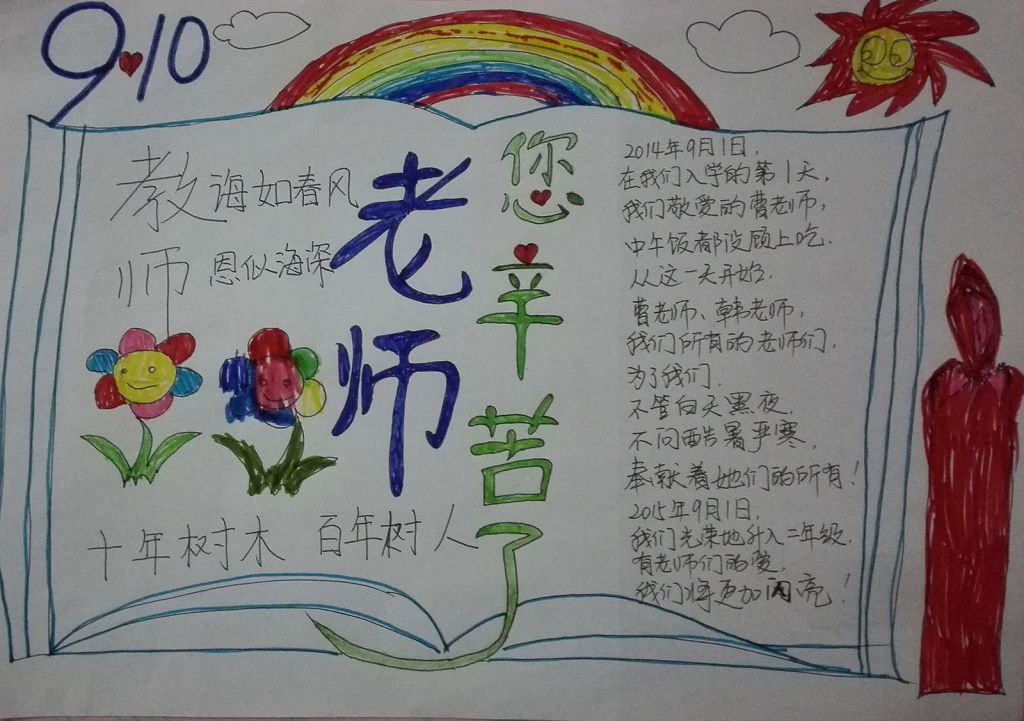 9·10
教诲如春风
师恩似海深
老师
您辛苦了
十年树木 百年树人
2014年9月1日,
在我们入学的第1天,
我们敬爱的曹老师,
中午饭都没顾上吃.
从这一天开始,
曹老师、韩老师,
我们所有的老师们,
为了我们.
不管白天黑夜,
不问酷暑严寒,
奉献着她们的所有!
2015年9月1日,
我们光荣地升入二年级.
有老师们的爱,
我们将更加闪亮!